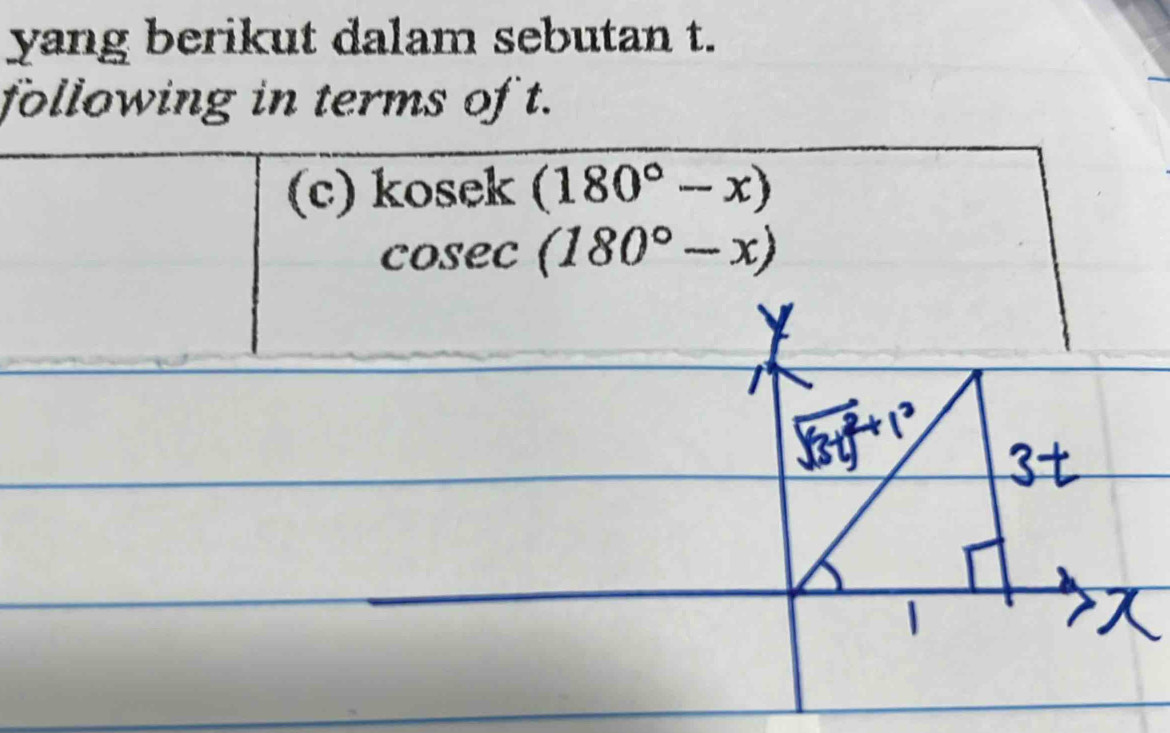 yang berikut dalam sebutan t.
following in terms of t.
(c) kosek (180° – x)
cosec (180° – x)
y
√(3t)² + 1²
3t
1
x